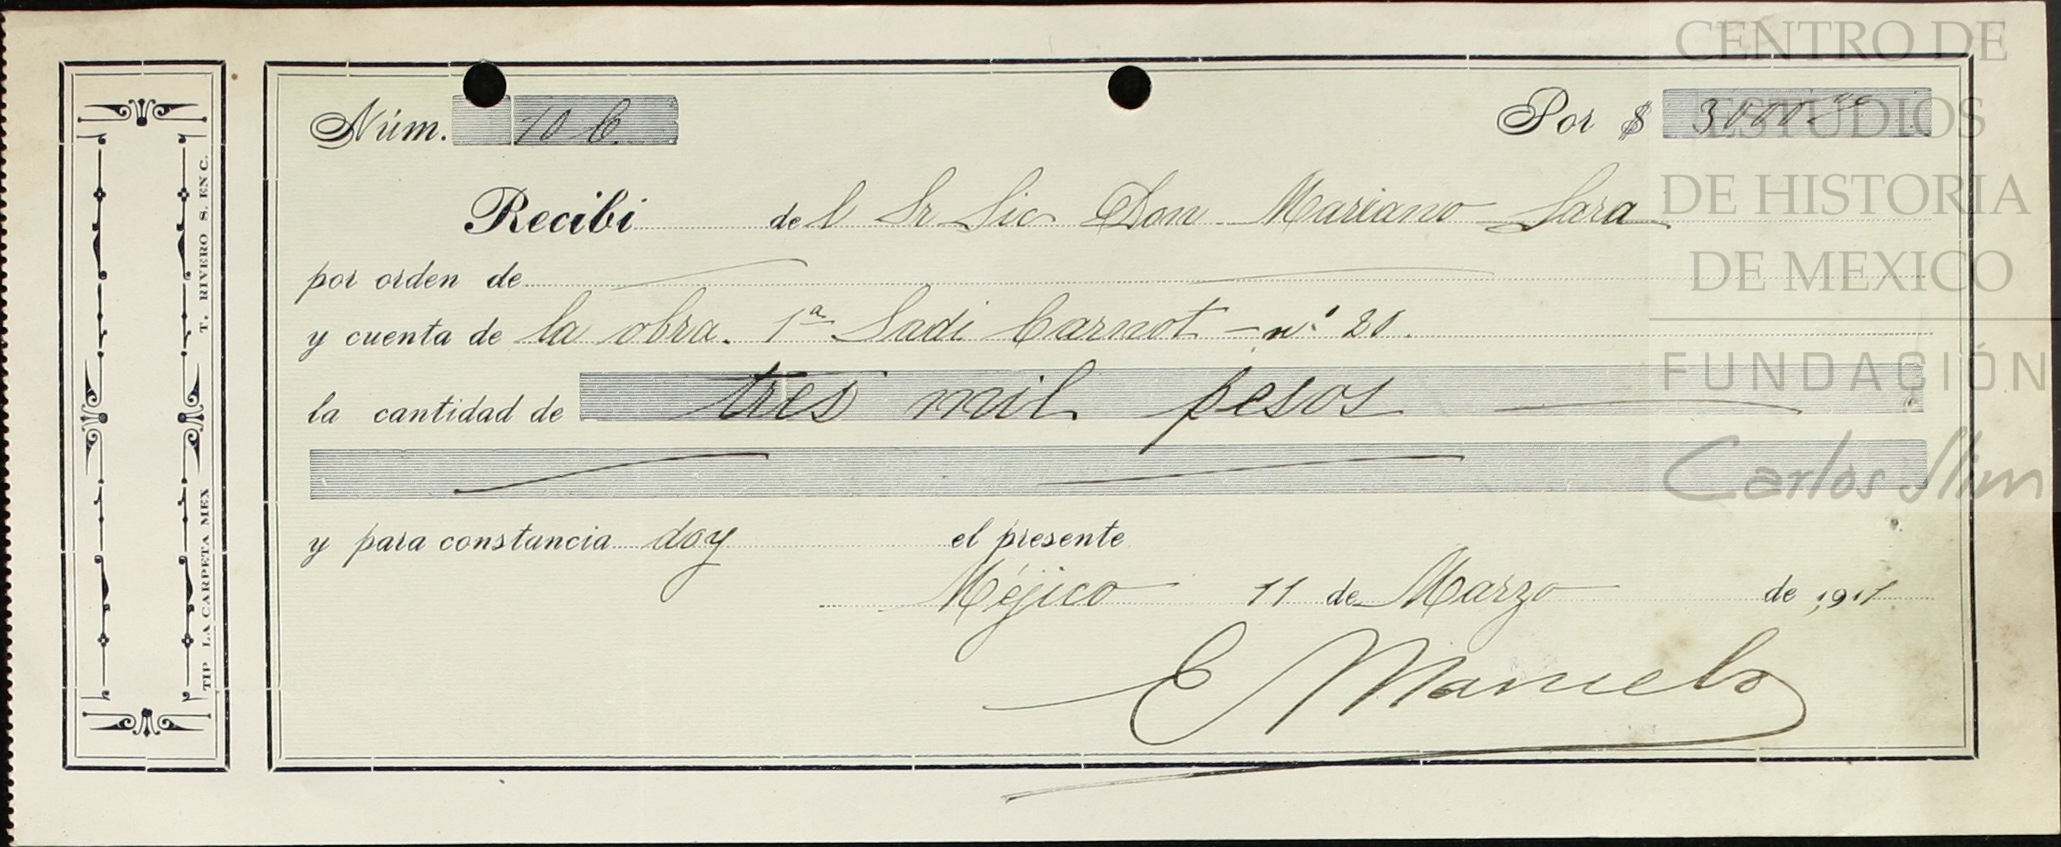 Núm. 10 C. Por $ 3000.00
Recibí del Sr Lic Don Mariano Lara
por orden de
y cuenta de la obra. 1ª Sadi Carnot - nº 20.
la cantidad de tres mil pesos
y para constancia doy el presente
Méjico 11 de Marzo de 1911
E
T. RIVERO S. EN C.
TIP LA CARPETA MEX
CENTRO DE
ESTUDIOS
DE HISTORIA
DE MEXICO
FUNDACIÓN
Carlos Slim